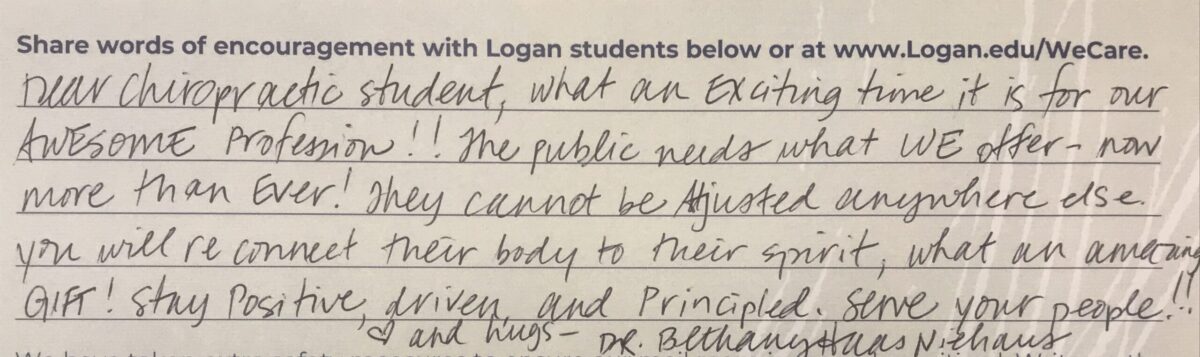 Share words of encouragement with Logan students below or at www.Logan.edu/WeCare.
Dear Chiropractic student, what an Exciting time it is for our
AWESOME Profession!! The public needs what WE offer - now
more than Ever! They cannot be Adjusted anywhere else.
you will reconnect their body to their spirit, what an amazing
GIFT! Stay Positive, driven, and Principled. Serve your people!!
♡ and hugs - DR. Bethany Haas Niehaus